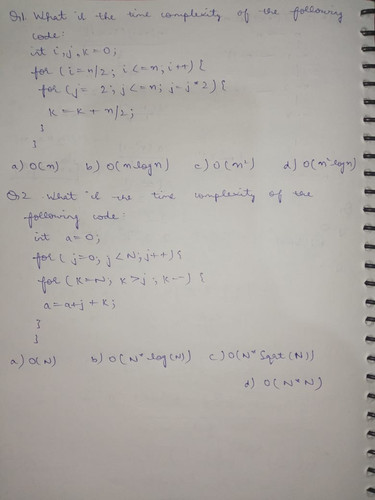 Q1. What is the time complexity of the following
code:
int i, j, k = 0;
for (i = n/2; i <= n, i++) {
for (j = 2; j <= n; j = j * 2) {
k = k + n/2;
}
}
a) O(n) b) O(n log n) c) O(n²) d) O(n² log n)
Q2. What is the time complexity of the
following code:
int a = 0;
for (j = 0; j < N; j++) {
for (K = N; K > j; K--) {
a = a + j + K;
}
}
a) O(N) b) O(N* log(N)) c) O(N* Sqrt(N))
d) O(N*N)